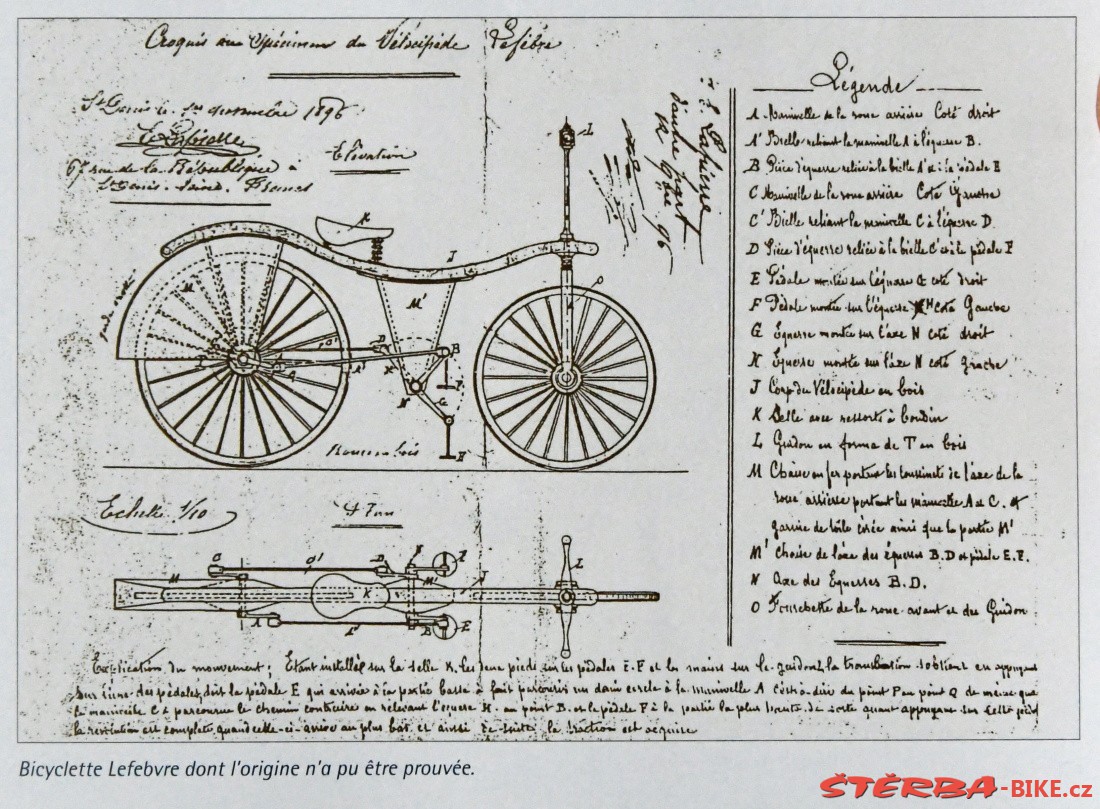 Croquis au Spécimen du Vélocipède Lefèbre
St Denis le 1er 1896
67 rue de la République à
St Denis Seine.
Elévation
96
L
K
J
M
M'
O
B
D
A'
C'
H
N
G
F
E
Roues en bois
Echelle 1/10
Plan
C
C'
D
H
F
M
M'
K
J
L
A
A'
B
E
Légende
A Manivelle de la roue arrière Coté droit
A' Bielle reliant la manivelle A à l'équerre B.
B Pièce d'équerre reliée à la bielle A' et à la pédale E
C Manivelle de la roue arrière Coté Gauche
C' Bielle reliant la manivelle C à l'équerre D.
D Pièce d'équerre reliée à la bielle C' et à la pédale F
E Pédale montée sur l'équerre G coté droit
F Pédale montée sur l'équerre H Coté Gauche
G Equerre montée sur l'axe N coté droit
H Equerre montée sur l'axe N coté gauche
J Corp du Vélocipède en bois
K Selle avec ressorts à boudin
L Guidon en forme de T en bois
M Chaise en fer portant les coussinets de l'axe de la
roue arrière portant les manivelles A et C. et
garnie de toile cirée ainsi que la partie M'
M' Chaise de l'axe des équerres B.D et pédale E.F.
N Axe des Equerres B.D.
O Fourchette de la roue avant et du Guidon
Explication du mouvement; Etant installé sur la selle K, les deux pieds sur les pédales E.F et les mains sur le guidon L, la translation s'obtient en appuyant
sur l'une des pédales, soit la pédale E qui arrivée à la partie basse a fait parcourir un demi cercle à la manivelle A c'est-à-dire du point P au point Q de même que
la manivelle C a parcouru le chemin contraire en relevant l'équerre H. au point B. et la pédale F à la partie la plus haute de sorte quant appuyant sur celle
la révolution est complète, quand celle-ci arrive au plus bas, et ainsi de suite la traction est acquise
Bicyclette Lefebvre dont l'origine n'a pu être prouvée.
ŠTĚRBA-BIKE.cz